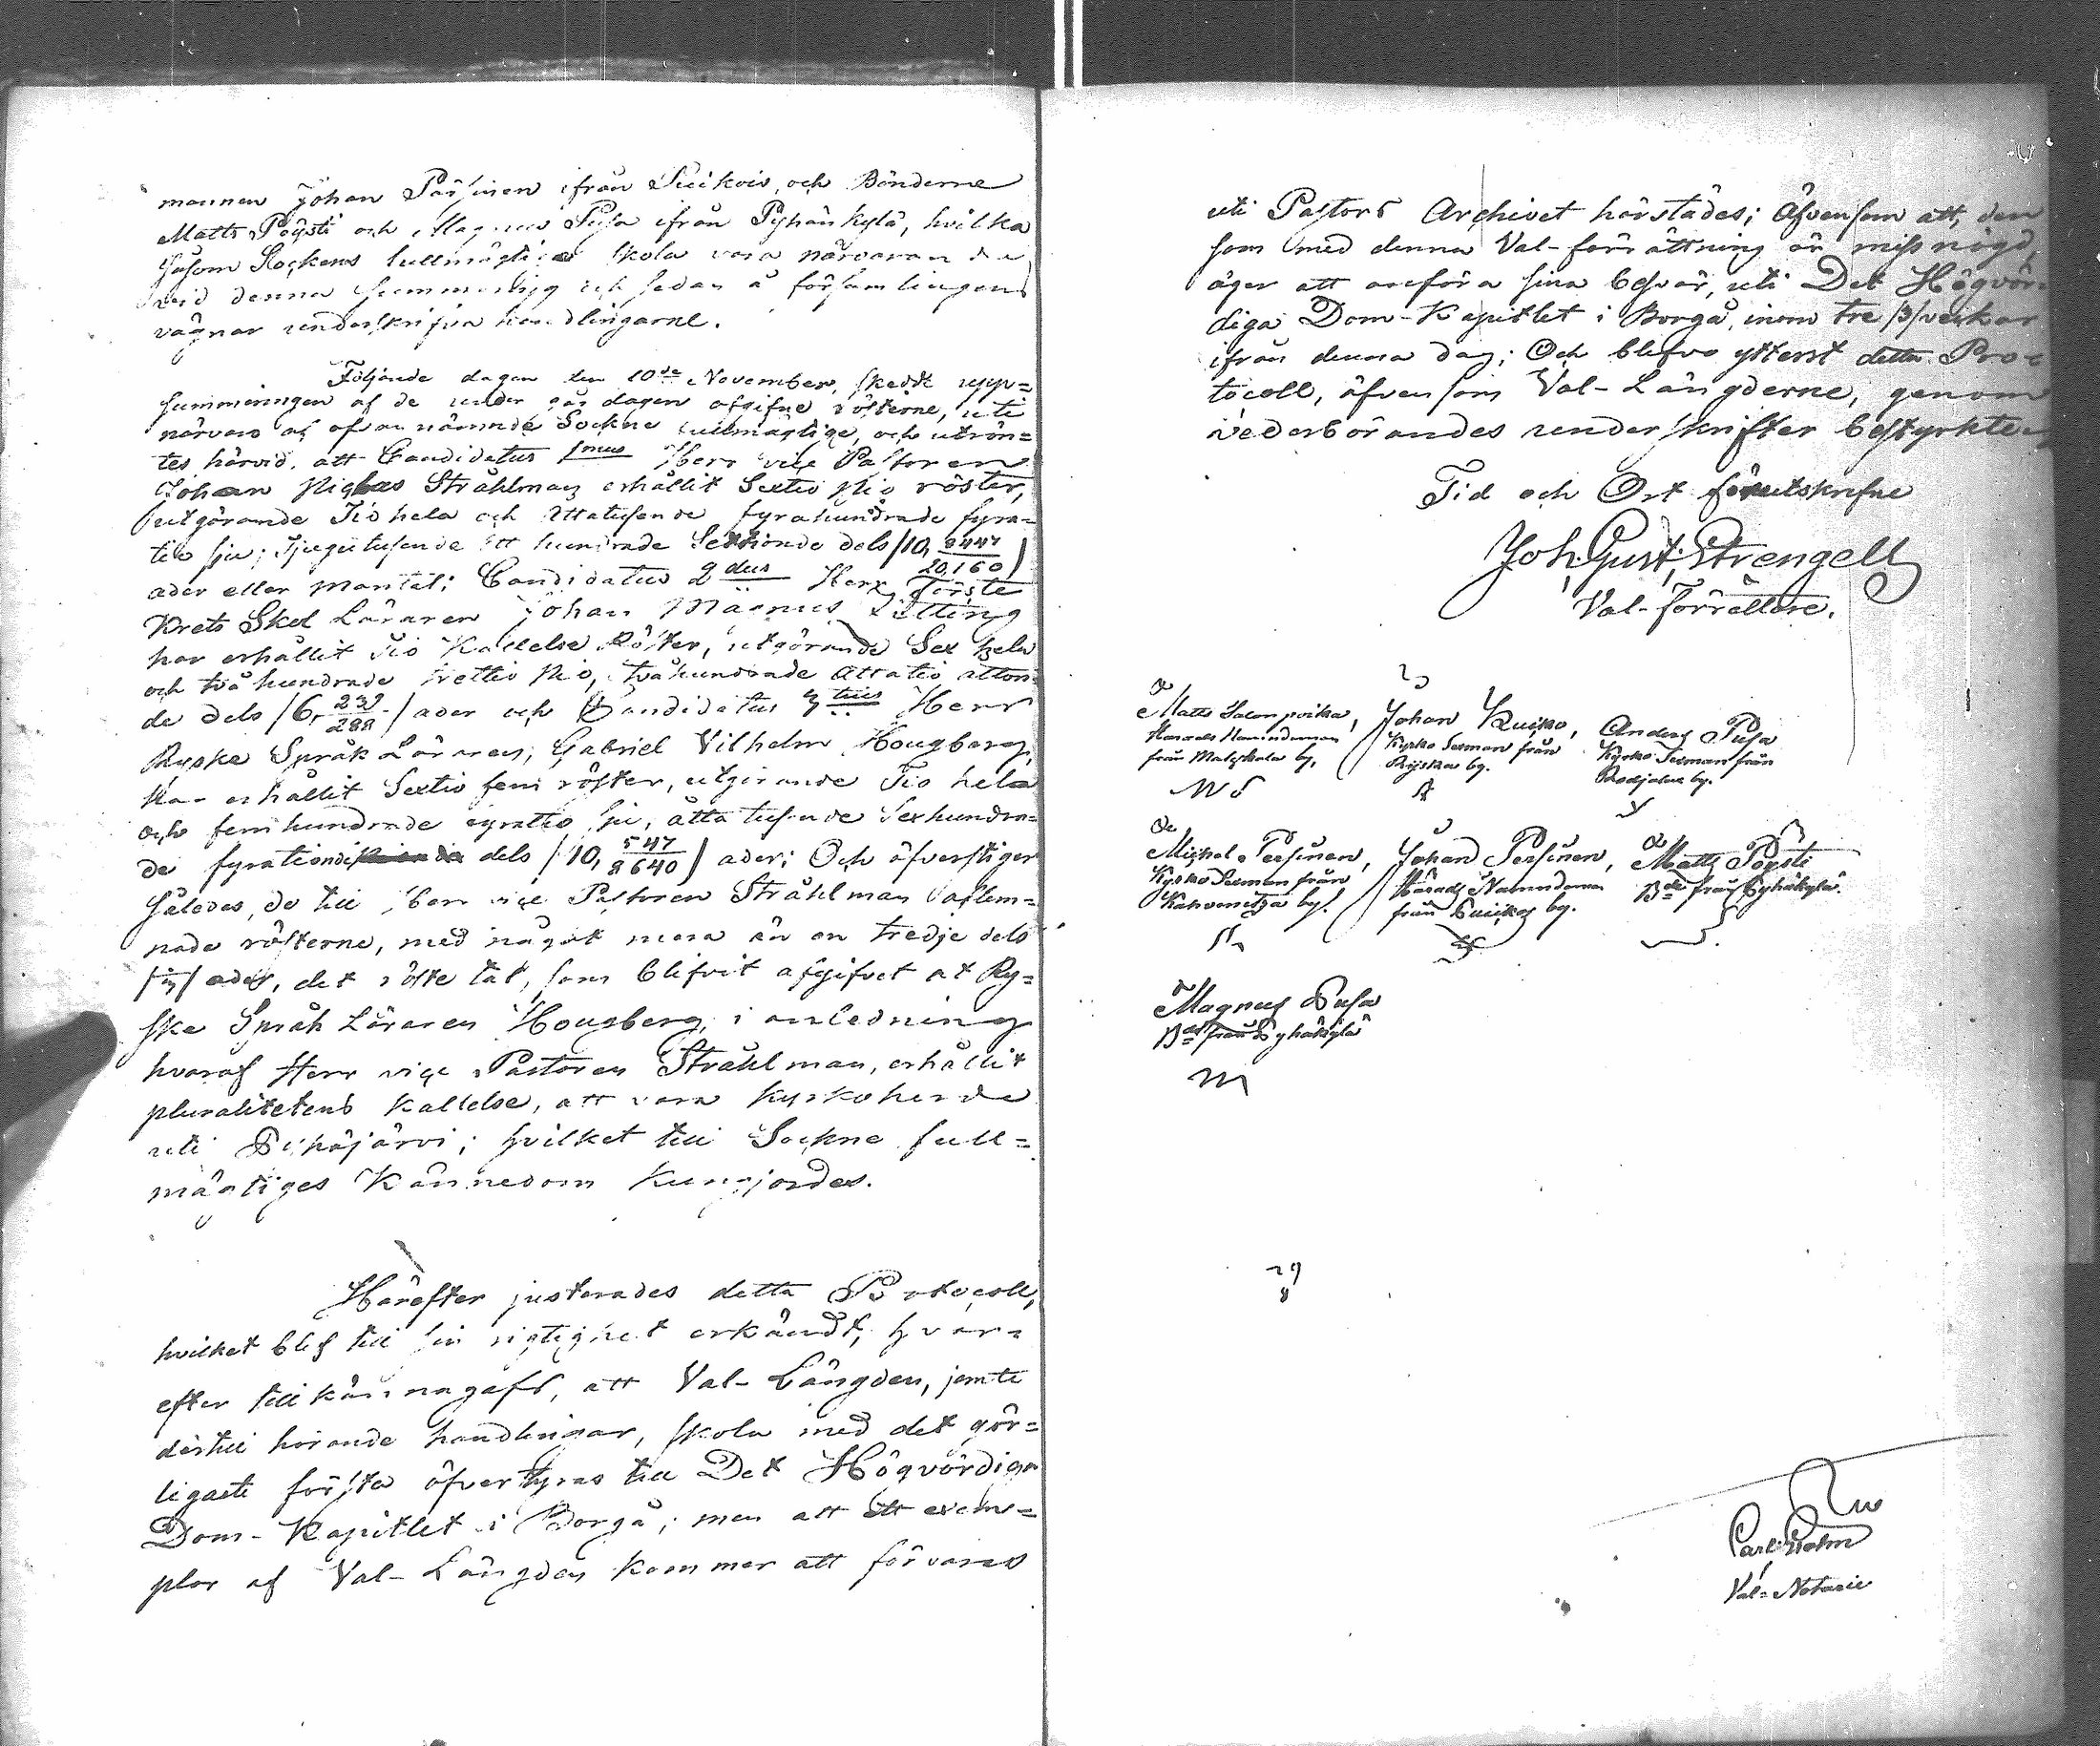 mannen Johan Pärsinen ifrån Suikois, och Bönderne
Matts Pöysti och Magnus Pusa ifrån Pyhänkylä, hvilka
såsom Sockens fullmägtige skola vara närvarande
vid denna summering och sedan å församlingens
vägnar underskrifva handlingarne.
Följande dagen den 10de November, skedde upp=
summeringen af de under går dagen afgifne rösterne, uti
närvaro af ofvannämnde Sockne fullmägtige, och utrön=
tes härvid, att Candidatus 1mus Herr vice Pastoren
Johan Niclas Stråhlman erhållit Sextio Nio röster,
utgörande Tio hela och Åttatusende fyrahundrade fyra=
tio sju, Tjugutusende Ett hundrade Sextionde dels /10, 8447/20,160/
ader eller mantal; Candidatus 2dus Herr Förste
Krets Skol Läraren Johan Magnus
har erhållit Tio Kallelse Röster, utgörande Sex hela
och två hundrade trettio Nio, tvåhundrade åttatio åtton=
de dels /6, 239/288/ ader och Candidatus 3tius Herr
Ryske Språk Läraren, Gabriel Vilhelm Hougberg,
har erhållit Sextio fem röster, utgörande Tio hela
och femhundrade fyratio sju, åtta tusende Sexhundra=
de fyrationdi dels /10, 547/8640/ ader; Och öfverstiger
således, de till Herr vice Pastoren Stråhlman aflem=
nade rösterne, med något mera än en tredje dels
/⅓/ ader, det röste tal, som blifvit afgifvet åt Ry=
ske Språk Läraren Hougberg, i anledning
hvaraf Herr vice Pastoren Stråhlman, erhållit
pluralitetens kallelse, att vara Kyrkoherde
uti Pyhäjärvi; hvilket till Sockne full=
mägtiges Kännedom kungjordes.
Härefter justerades detta Protocoll,
hvilket blef till sin rigtighet erkändt, hvar=
efter tillkännagafs, att Val-Längden, jemte
dertill hörande handlingar, skola med det gör=
ligaste första öfverstyras till Det Högvördiga
Dom-Kapitlet i Borgå; men att ett exem=
plar af Val-Längden kommer att förvaras
uti Pastors Archivet härstädes; Äfvensom att, den
som med denna Val-förrättning är missnögd,
äger att anföra sina besvär, uti Det Högvör=
diga Dom-Kapitlet i Borgå, inom tre /3/ veckor
ifrån denna dag; Och blefvo ytterst detta Pro=
tocoll, äfvensom Val-Längderne, genom
vederbörandes underskrifter bestyrkte.
Tid och Ort förutskrifne
Joh. Gust. Strengell
Val-Förrättare.
Matts Salonpoika, Johan Kuisko, Anders Pusa
Härads Nämndeman Kyrko Sexman från Kyrko Sexman från
från Matzikala by, Rijska by. by.
Michel Persinen, Johan Persinen, Matts Pöysti
Kyrko Sexman från Härads Nämndeman Bde från Pyhäkylä.
Kahvenitza by. från Suikois by.
Magnus Pusa
Bde från Pyhäkylä
Carl Holm
Val-Notarie